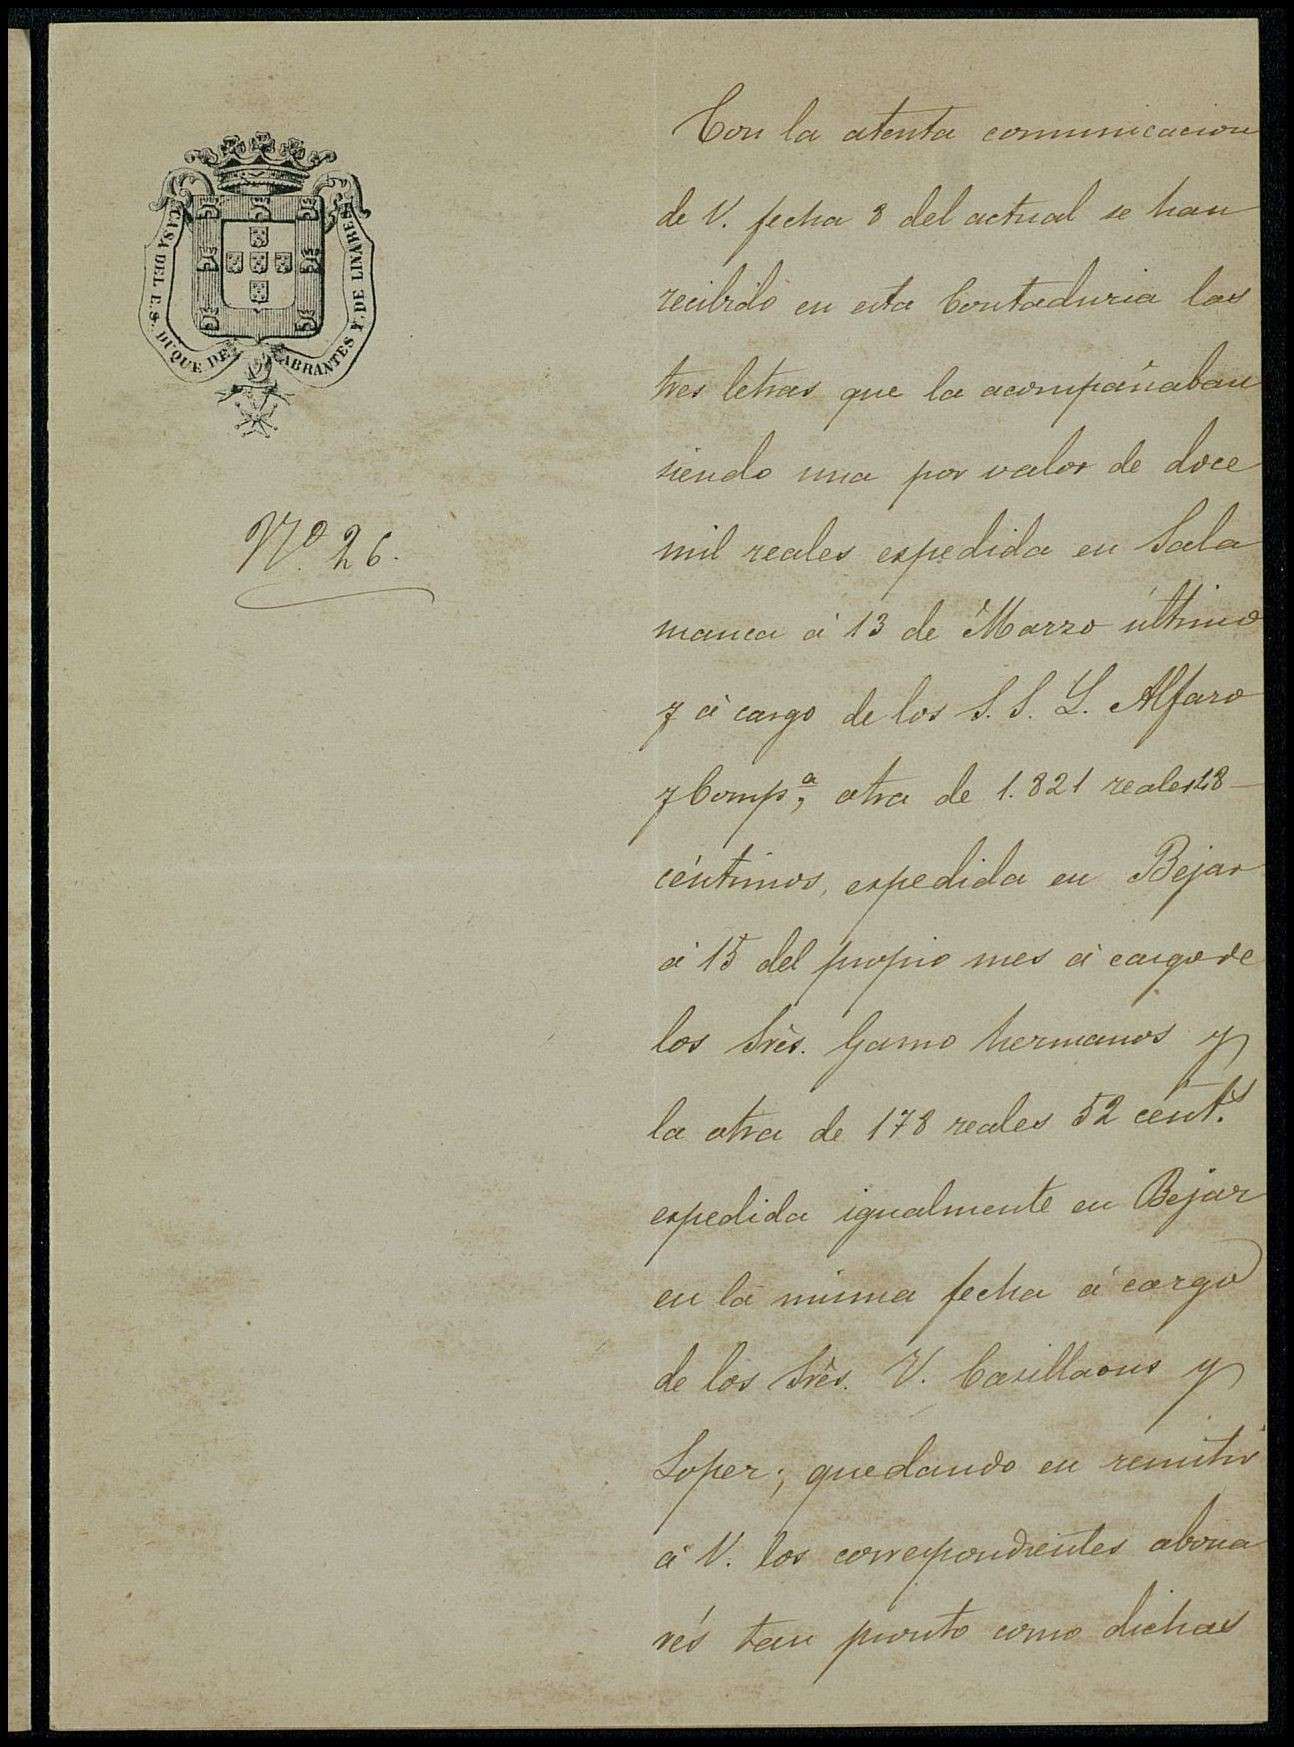 CASA DEL E.S. DUQUE DE ABRANTES Y DE LINARES
Nº 26.
Con la atenta comunicacion
de V. fecha 8 del actual se han
recibido en esta Contaduria las
tres letras que la acompañaban
siendo una por valor de doce
mil reales espedida en Sala
manca á 13 de Marzo último
y á cargo de los S. S. L. Alfaro
y Comp.ª, otra de 1.821 reales 48
céntimos, espedida en Bejar
á 15 del propio mes á cargo de
los Sres. Gamo hermanos y
la otra de 178 reales 52 cént.s
espedida igualmente en Bejar
en la misma fecha á cargo
de los Sres. V. y
Loper; quedando en remitir
á V. los correspondientes abona
rés tan pronto como dichas